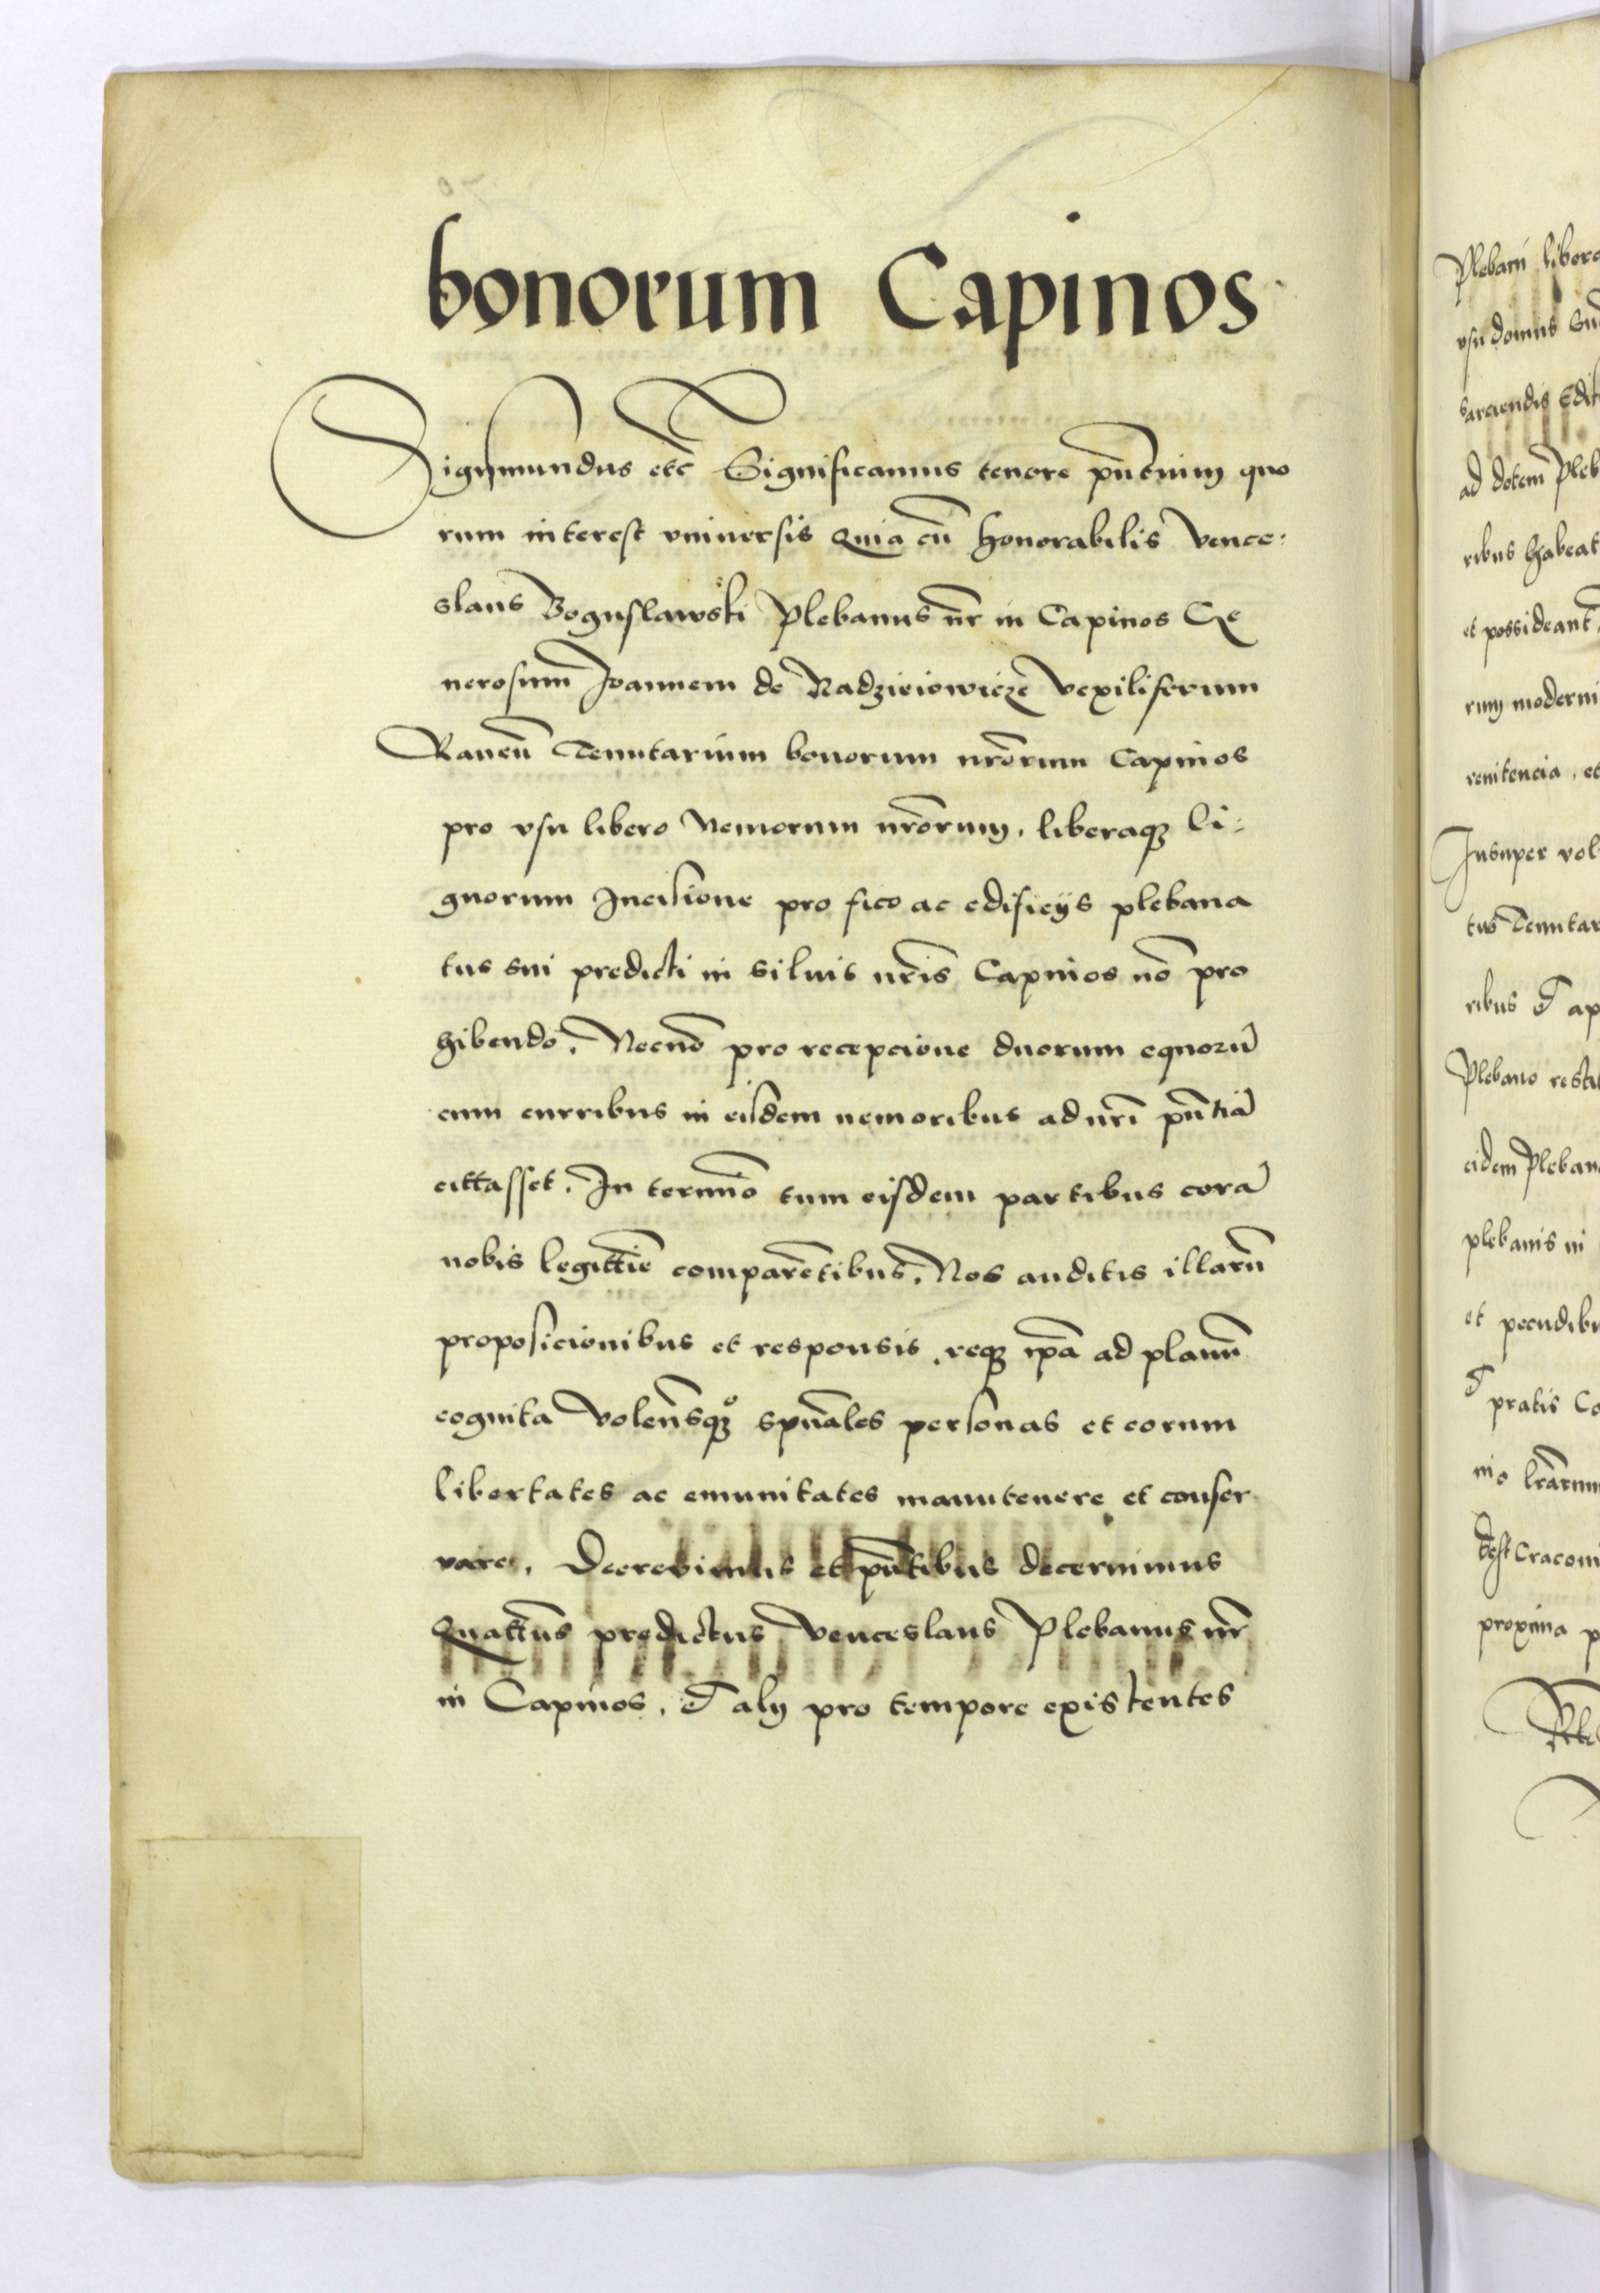 bonorum Capinos
Sigismundus etc̄ Significamus tenore pn̄tium quo
rum interest vniuersis Quia cū honorabilis Vence:
slaus Boguslawski Plebanus nr̄ in Capinos Ge
nerosum Joannem de Radzieiowicze Vexiliferum
Raueñ Tenutarium bonorum nr̄orum Capinos
pro vsu libero Nemorum nr̄orum, liberaqꝫ li:
gnorum Incisione pro fico ac edificijs plebana
tus sui predicti in siluis nr̄is Capinos nō pro
hibendo, Necnō pro recepcione duorum equorū
cum curribus in eisdem nemoribus ad nr̄i pn̄tiā
cittasset. In termīo tum eisdem partibus corā
nobis legittīe comparētibus, Nos auditis illarū
proposicionibus et responsis, reqꝫ ip̄a ad planū
cognita Volen̄sqꝫ spūales personas et eorum
libertates ac emunitates manutenere et conser
vare, Decrevimus et pn̄tibus decernimus
Quattūs predictus Venceslaus Plebanus nr̄
in Capinos, et alij pro tempore existentes
Plebani
vsu domus
sarciendis
ad dotem
ribus habeat
et possideant
rum moderni
renitencia, et
Insuper
ribus et
Plebano
eidem
plebanis in
et
et pratis
proxima